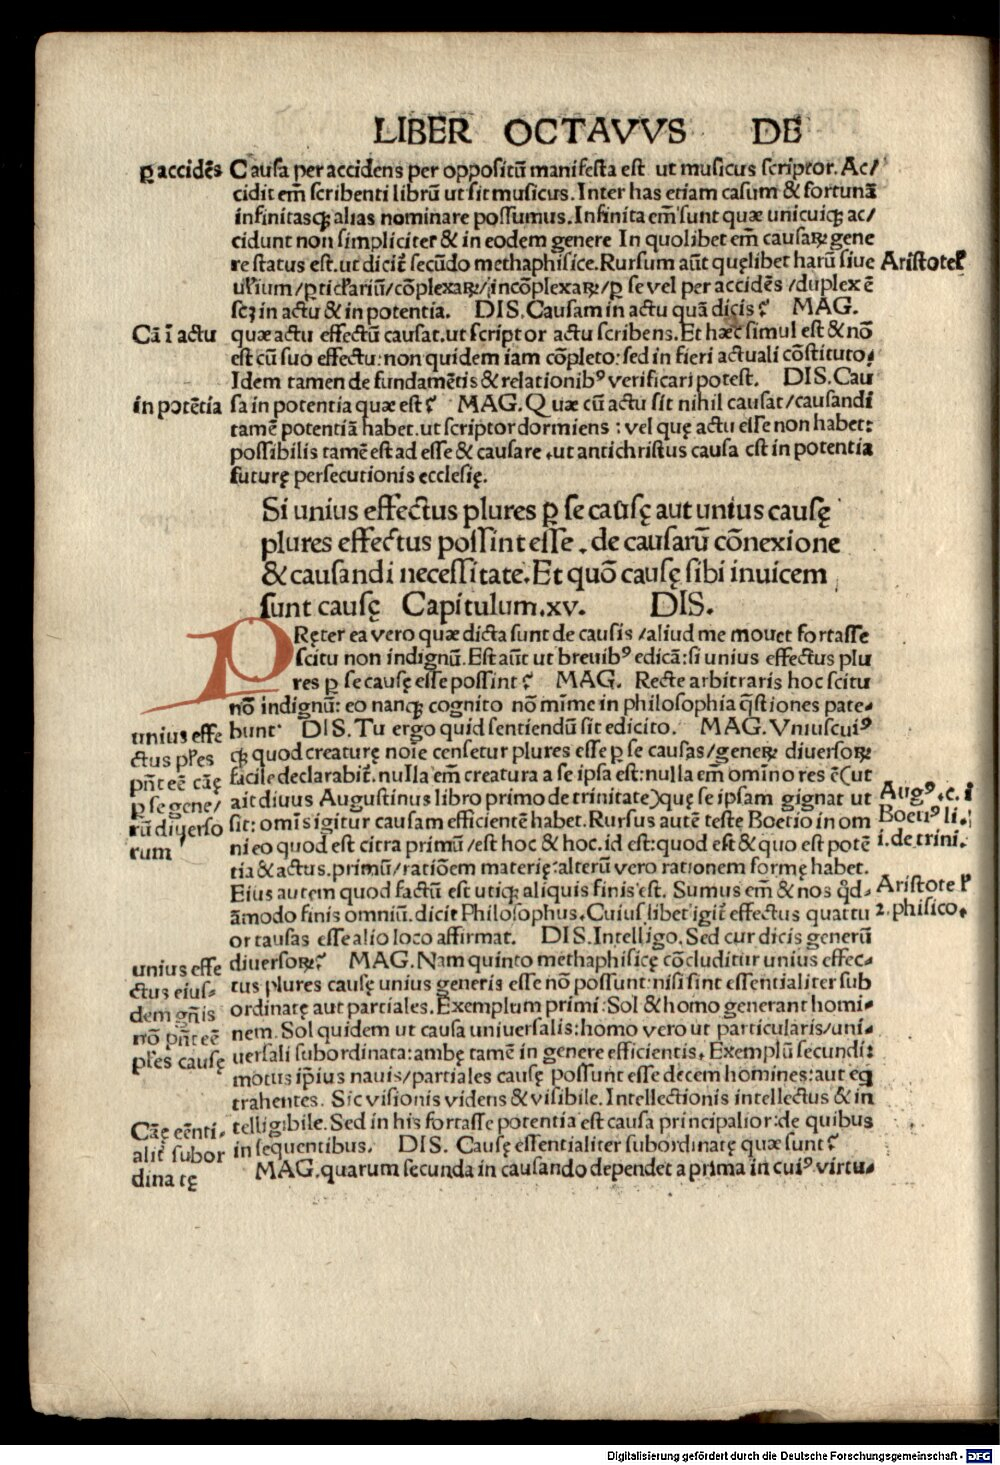 LIBER OCTAVVS DE
ꝑ accidẽs
Causa per accidens per oppositũ manifesta est ut musicus scriptor. Ac/
cidit em̃ scribenti librũ ut sit musicus. Inter has etiam casum & fortunã
infinitasqꝫ alias nominare possumus. Infinita em̃ sunt quæ unicuiqꝫ ac/
cidunt non simpliciter & in eodem genere In quolibet em̃ causaꝝ gene
re status est. ut dicit̃ secũdo methaphisice. Rursum aũt quęlibet harũ siue
Aristotel̃
ul̃ium/ꝑticl̃ariũ/cõplexaꝝ/incõplexaꝝ/ꝑ se vel per accidẽs/duplex ẽ
scꝫ in actu & in potentia. DIS. Causam in actu quã dicis? MAG.
Cã ĩ actu
quæ actu effectũ causat. ut scriptor actu scribens. Et hæc simul est & nõ
est cũ suo effectu: non quidem iam cõpleto: sed in fieri actuali cõstituto.
Idem tamen de fundamẽtis & relationibꝰ verificari potest. DIS. Cau
in potẽtia
sa in potentia quæ est? MAG. Quæ cũ actu sit nihil causat/causandi
tamẽ potentiã habet. ut scriptor dormiens: vel quę actu esse non habet:
possibilis tamẽ est ad esse & causare. ut antichristus causa est in potentia
futurę persecutionis ecclesię.
Si unius effectus plures ꝑ se causę aut unius causę
plures effectus possint esse. de causarũ cõnexione
& causandi necessitate. Et quõ causę sibi inuicem
sunt causę Capitulum. xv. DIS.
PRęter ea vero quæ dicta sunt de causis/aliud me mouet fortasse
scitu non indignũ. Est aũt ut breuibꝰ edicã: si unius effectus plu
res ꝑ se causę esse possint? MAG. Recte arbitraris hoc scitu
nõ indignũ: eo nanqꝫ cognito nõ mĩme in philosophia q̃stiones pate-
bunt. DIS. Tu ergo quid sentiendũ sit edicito. MAG. Vniuscuiꝰ
unius effe
ctus pl̃es
pñt eẽ cãę
ꝑ se gene/
rũ diuerso
rum
qꝫ quod creaturę noĩe censetur plures esse ꝑ se causas/geneꝝ diuersoꝝ
facile declarabit̃. nulla em̃ creatura a se ipsa est: nulla em̃ omĩno res ẽ (ut
ait diuus Augustinus libro primo de trinitate) quę se ipsam gignat ut
Augꝰ. c. i
sit: omĩs igitur causam efficientẽ habet. Rursus autẽ teste Boetio in om
Boetiꝰ li.
i. de trini.
ni eo quod est citra primũ/est hoc & hoc. id est: quod est & quo est potẽ
tia & actus. primũ/ratiõem materię: alterũ vero rationem formę habet.
Eius autem quod factũ est utiqꝫ aliquis finis est. Sumus em̃ & nos q̃d-
Aristotel̃
2. phisico.
ãmodo finis omniũ. dicit Philosophus. Cuiuslibet igit̃ effectus quattu
or causas esse alio loco affirmat. DIS. Intelligo. Sed cur dicis generũ
diuersoꝝ? MAG. Nam quinto methaphisicę cõcluditur unius effec-
unius effe
ctus eius-
dem gñis
nõ pñt eẽ
pl̃es causę
tus plures causę unius generis esse nõ possunt: nisi sint essentialiter sub
ordinatę aut partiales. Exemplum primi: Sol & homo generant homi-
nem. Sol quidem ut causa uniuersalis: homo vero ut particularis/uni-
uersali subordinata: ambę tamẽ in genere efficientis. Exemplũ secundi:
motus ip̃ius nauis/partiales causę possunt esse decem homines: aut eq̃
trahentes. Sic visionis videns & visibile. Intellectionis intellectus & in
telligibile. Sed in his fortasse potentia est causa principalior: de quibus
Cãę eẽnti-
alit̃ subor
dinatę
in sequentibus. DIS. Causę essentialiter subordinatę quæ sunt?
MAG. quarum secunda in causando dependet a prima in cuiꝰ virtu-
Digitalisierung gefördert durch die Deutsche Forschungsgemeinschaft - DFG